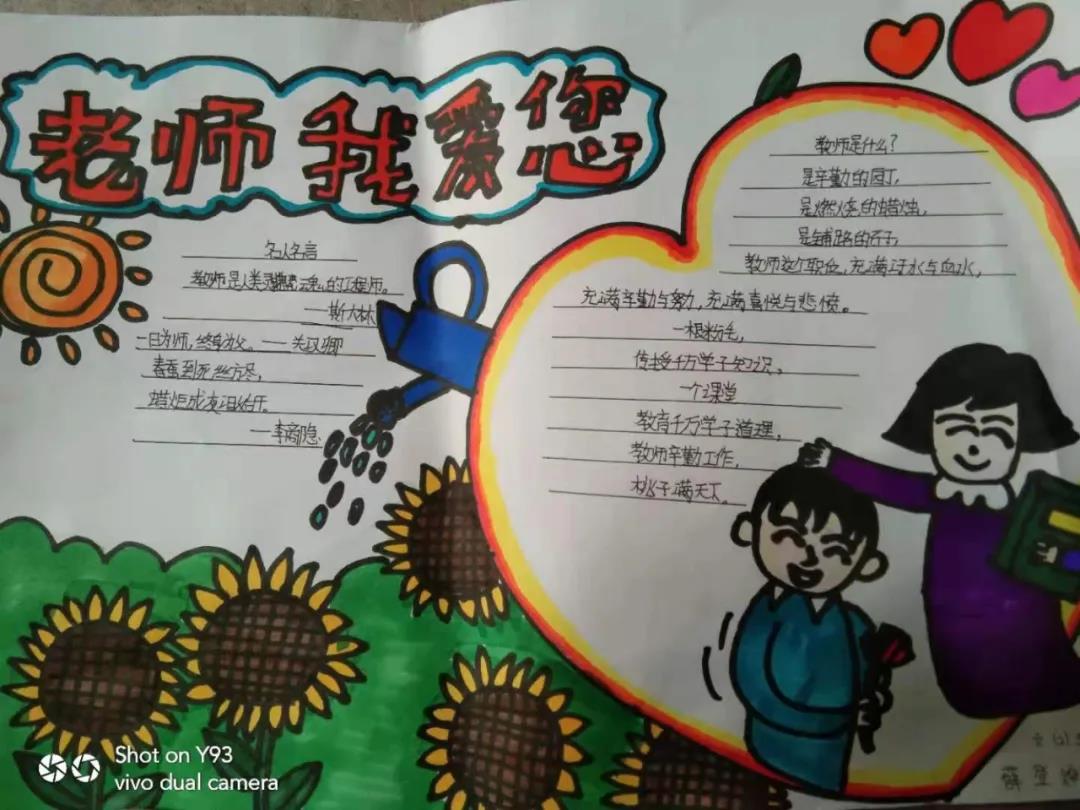 老师我爱您
名人名言
教师是人类灵魂的工程师。
——斯大林
一日为师,终身为父。——关汉卿
春蚕到死丝方尽,
蜡炬成灰泪始干。
——李商隐
教师是什么?
是辛勤的园丁,
是燃烧的蜡烛,
是铺路的石子,
教师这个职位,充满汗水与血水,
充满辛勤与努力,充满喜悦与悲愤。
一根粉笔,
传授千万学子知识,
一个课堂
教育千万学子道理,
教师辛勤工作,
桃子满天下。
薛
Shot on Y93
vivo dual camera